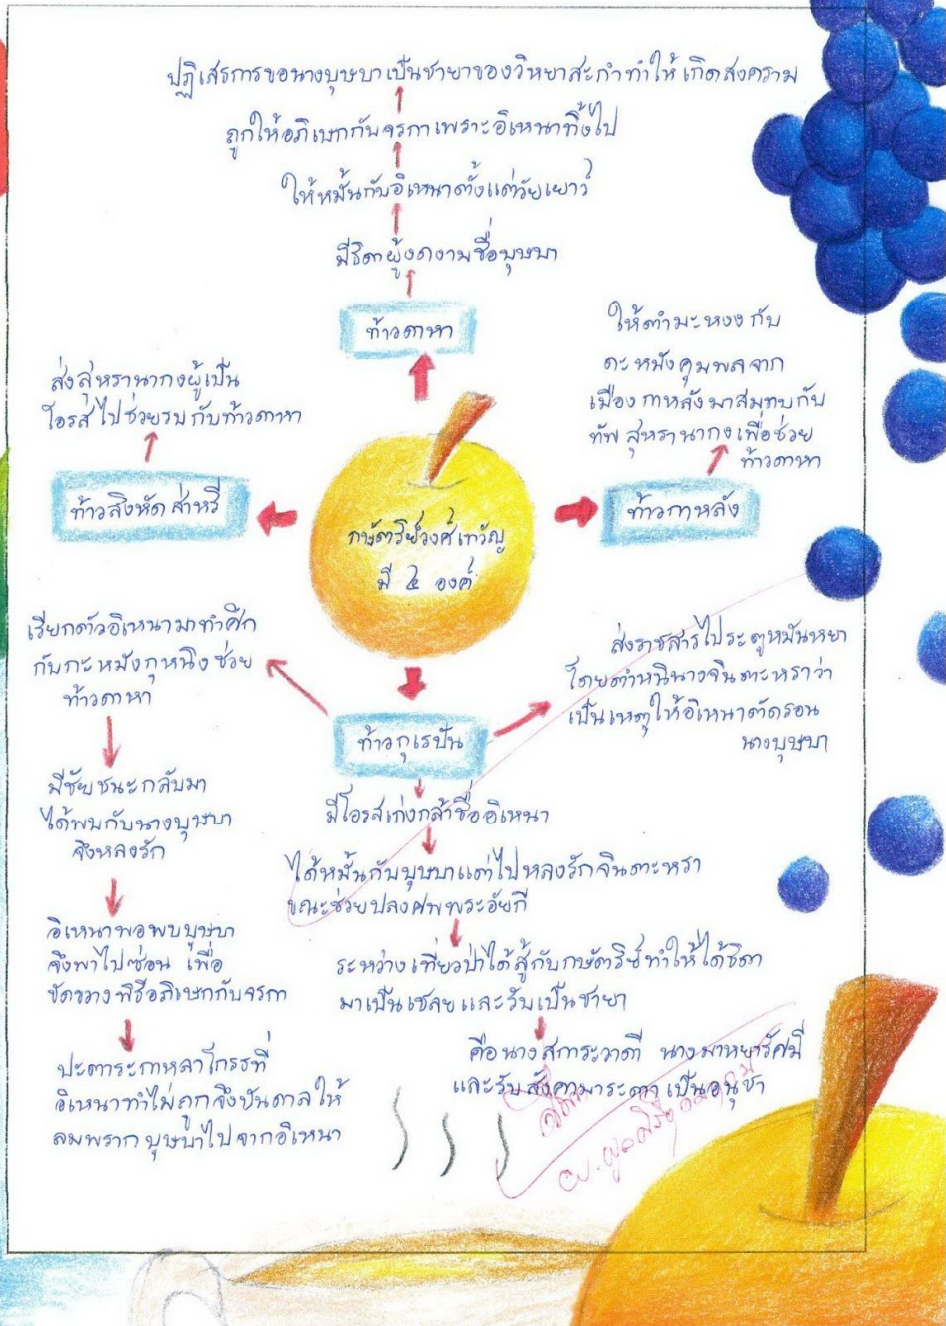 ปฏิเสธการขอนางบุษบาเป็นชายาของวิหยาสะกำทำให้เกิดสงคราม
ถูกให้อภิเษกกับจรกาเพราะอิเหนาทิ้งไป
ให้หมั้นกับอิเหนาตั้งแต่วัยเยาว์
มีธิดาผู้งดงามชื่อบุษบา
ท้าวดาหา
ส่งสุหรานากงผู้เป็น
โอรสไปช่วยรบกับท้าวดาหา
ท้าวสิงหัดส่าหรี
ให้ตำมะหงงกับ
ดะหมังคุมพลจาก
เมืองกาหลังมาสมทบกับ
ทัพสุหรานากงเพื่อช่วย
ท้าวดาหา
ท้าวกาหลัง
กษัตริย์วงศ์เทวัญ
มี ๔ องค์
เรียกตัวอิเหนามาทำศึก
กับกะหมังกุหนิงช่วย
ท้าวดาหา
มีชัยชนะกลับมา
ได้พบกับนางบุษบา
จึงหลงรัก
อิเหนาพอพบบุษบา
จึงพาไปซ่อน เพื่อ
ขัดขวางพิธีอภิเษกกับจรกา
ปะตาระกาหลาโกรธที่
อิเหนาทำไม่ถูกจึงบันดาลให้
ลมพรากบุษบาไปจากอิเหนา
ท้าวกุเรปัน
ส่งราชสารไประตูหมันหยา
โดยตำหนินางจินตะหราว่า
เป็นเหตุให้อิเหนาตัดรอน
นางบุษบา
มีโอรสเก่งกล้าชื่ออิเหนา
ได้หมั้นกับบุษบาแต่ไปหลงรักจินตะหรา
ขณะช่วยปลงศพพระอัยกี
ระหว่างเที่ยวป่าได้สู้กับกษัตริย์ทำให้ได้ธิดา
มาเป็นเชลยและรับเป็นชายา
คือนางสการะวาตี นางมาหยารัศมี
และรับสังคามาระตาเป็นอนุชา